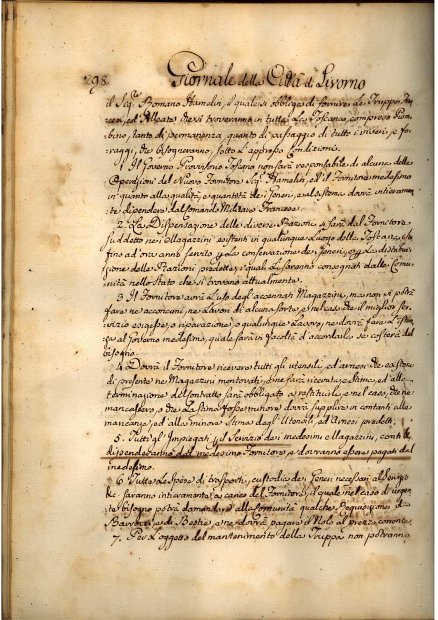 298 Giornale della Città di Livorno
il Sig.r Romano Hamelin, il quale si obbliga di fornire le Truppe Fran
cesi, ed Alleate che si troveranno in tutta la Toscana, compreso Piom
bino, tanto di permanenza, quanto di passaggio di tutti i viveri, e fo
raggi, che bisogneranno, sotto l'appresso Condizioni.
1. Il Governo Provvisorio Toscano non sarà responsabile di alcuna delle
Operazioni del Nuovo Fornitore Sig.r Hamelin, ed il Fornitore medesimo
in quanto alla qualità, e quantità dei Generi, ed al sistema dovrà intieramen
te dipendere dal Comando Militare Francese.
2. La Dispensazione delle diverse Razioni si farà dal Fornitore
suddetto nei Magazzini esistenti in qualunque Luogo della Toscana, che
fino ad ora anno servito per la conservazione dei Generi, e per la distribu
zione delle Razioni predette, i quali li saranno consegnati dalle Comu
nità nello Stato che si trovano attualmente.
3. Il Fornitore avrà l'uso degl'accennati Magazzini, ma non si potrà
fare ne acconcimi, ne Lavori di alcuna sorte, e nel caso che il miglior ser
vizio esigesse, o riparazione, o qualunque Lavoro, ne dovrà fare
al Governo medesimo, quale sarà in facoltà d'accordarle se crederà del
bisogno.
4. Dovrà il Fornitore ricevere tutti gl'utensili, ed arnesi che esistono
di presente ne Magazzini mentovati, e ne farà ricevuta e Stima, ed alla
terminazione del Contratto sarà obbligato a restituirli, e nel caso, che ne
mancassero, o che la Stima fosse minore dovrà supplire in contanti alle
mancanze, ed alla minore Stima degl'Utensili, ed Arnesi predetti.
5. Tutti gl'Impiegati per il Servizio dei medesimi Magazzini,
dipenderanno dal medesimo Fornitore, e dovranno essere pagati dal
medesimo.
6. Tutte le Spese di trasporti, custodia dei Generi necessari
saranno intieramente a carico del Fornitore, il quale nel caso di urgen
te bisogno potrà domandare alla Comunità qualche Requisizione di
Barrocci, e di Bestie, e ne dovrà pagare il Nolo al prezzo corrente.
7. Per l'oggetto del mantenimento della Truppa non potranno